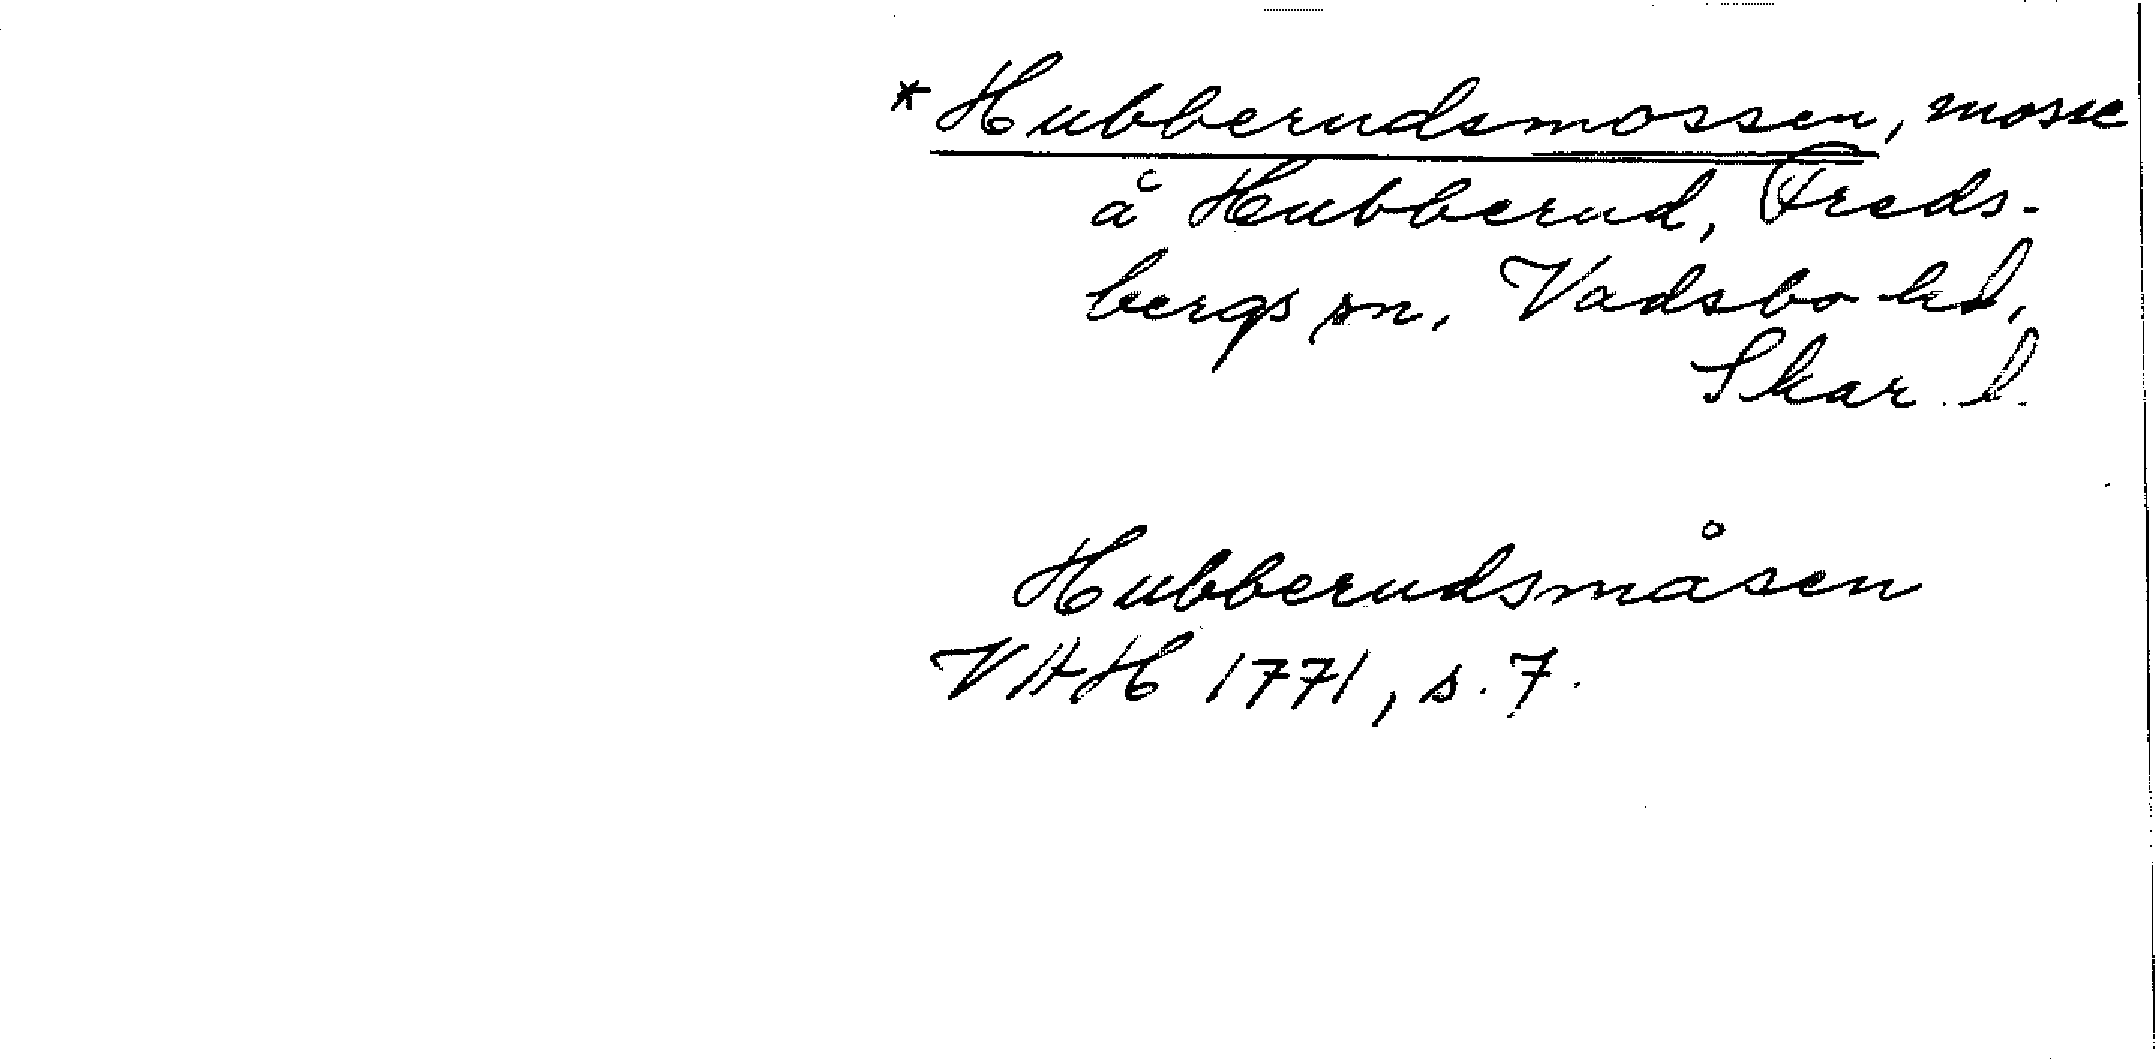 * Hubberudsmossen, mosse
å Hubberud, Freds-
bergs sn, Vadsbo hd,
Skar. l.
Hubberudsmåsen
VHH 1771, s. 7.